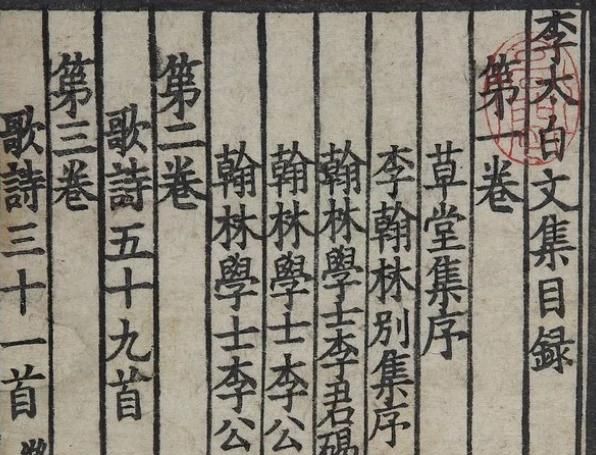 李太白文集目録
第一卷
草堂集序
李翰林別集序
翰林學士李君碣
翰林學士李公
翰林學士李公
第二卷
歌詩五十九首
第三卷
歌詩三十一首